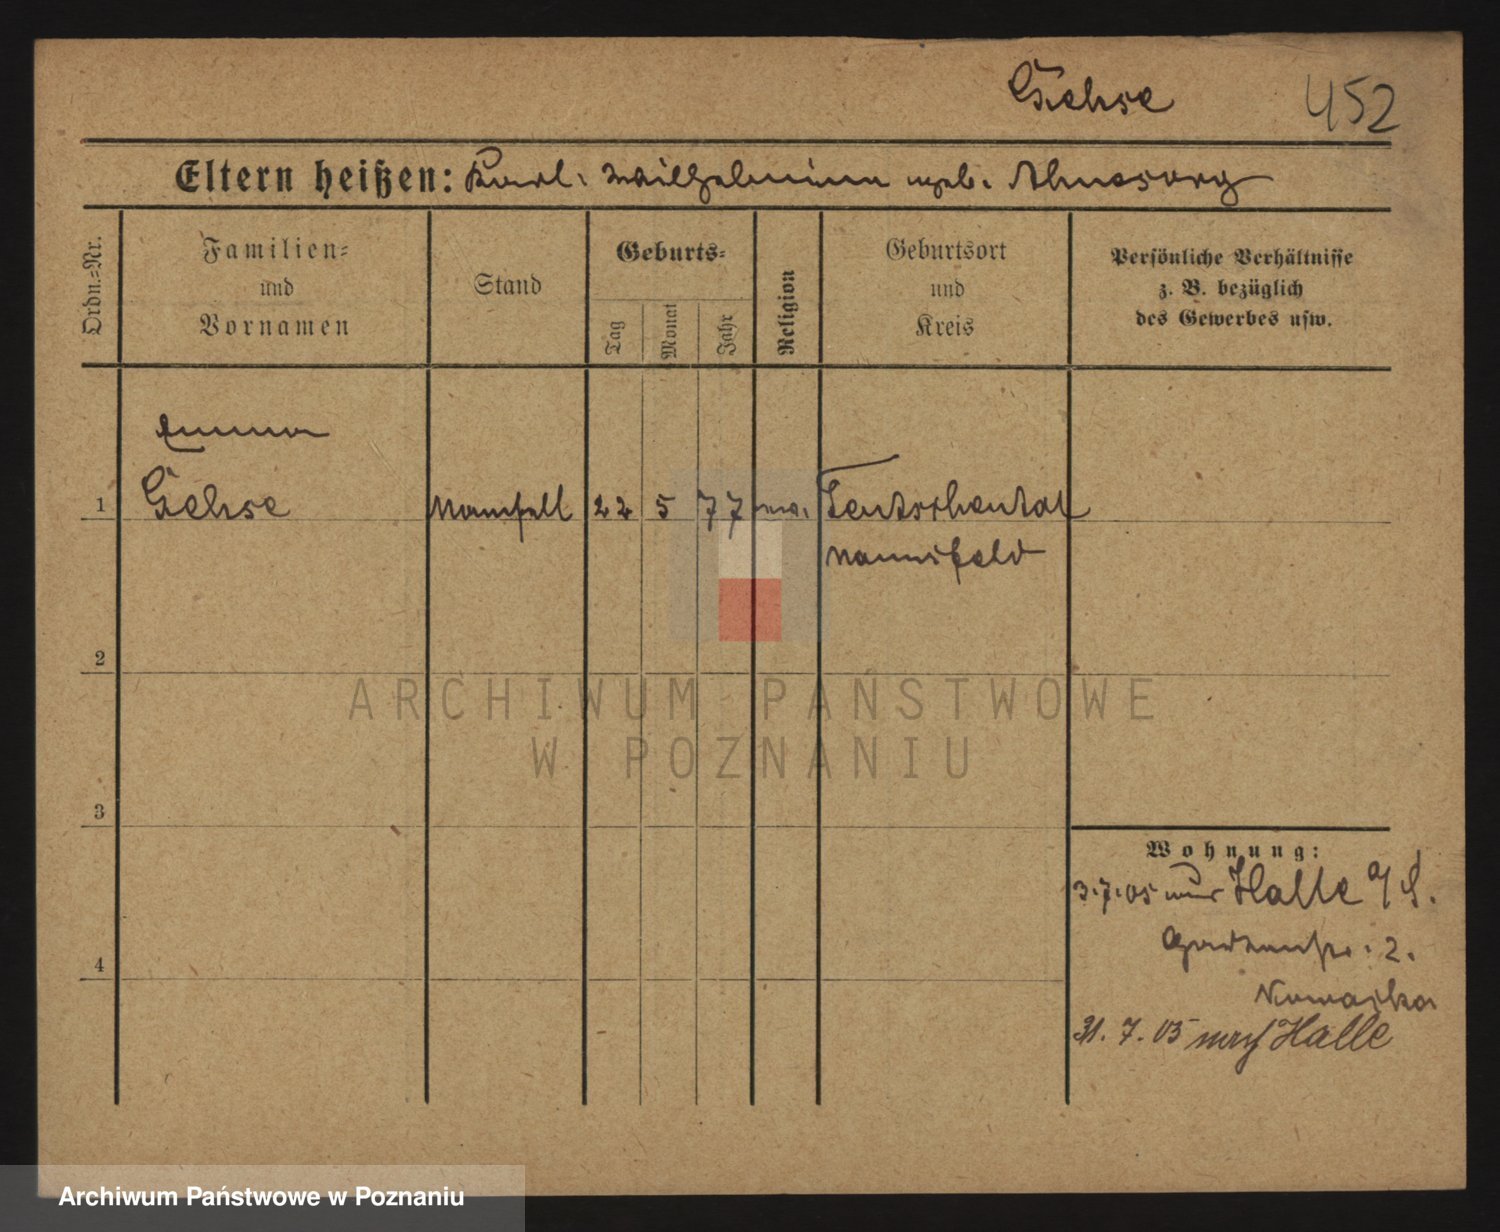 Gehse 452
Eltern heißen: Karl. Wilhelmine geb. Ahnesorg
Ordn.=Nr.
Familien=
und
Vornamen
Stand
Geburts=
Tag
Monat
Jahr
Religion
Geburtsort
und
Kreis
Persönliche Verhältnisse
z. B. bezüglich
des Gewerbes usw.
Emma
1 Gehse Mamsell 22 5 77 Teutschental
Mansfeld
2
3
4
ARCHIWUM PAŃSTWOWE
W POZNANIU
Wohnung:
3.7.05 aus Halle a/S.
2.
31. 7. 05 nach Halle
Archiwum Państwowe w Poznaniu